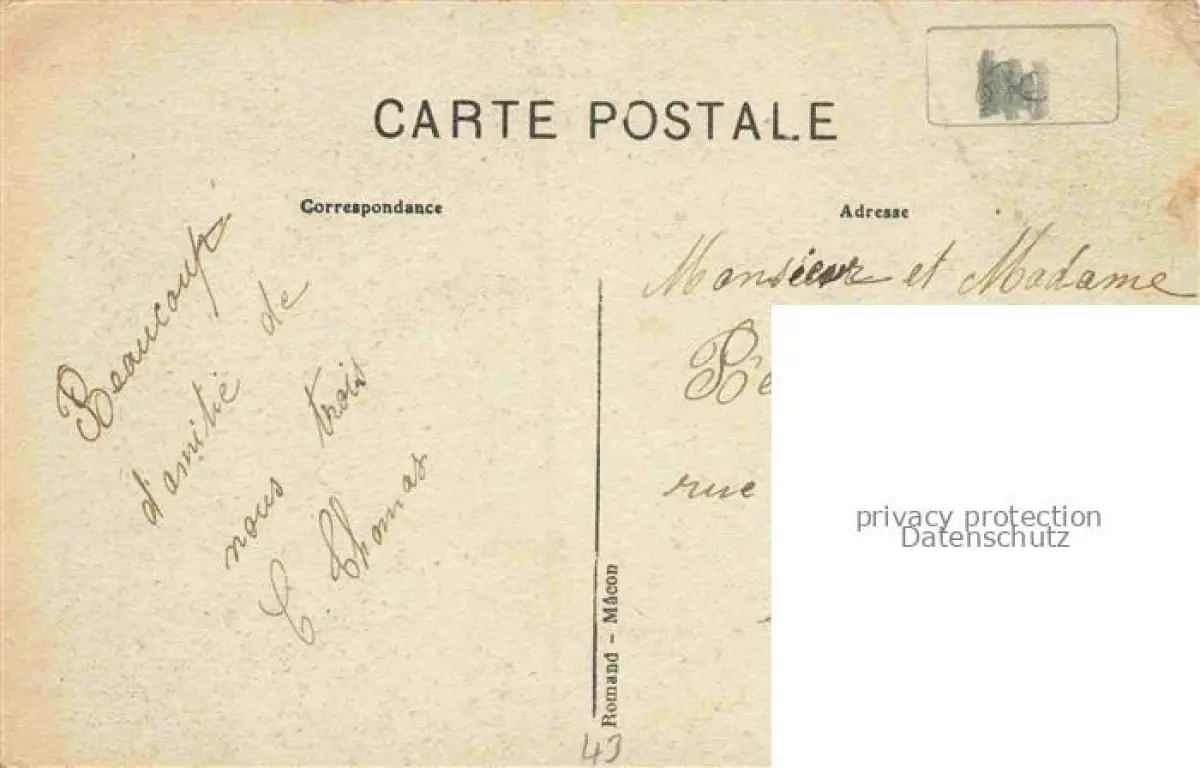 CARTE POSTALE
Correspondance
Adresse
Beaucoup
d'amitié de
nous trois
C. Thomas
Monsieur et Madame
rue
privacy protection
Datenschutz
Romand - Mâcon
43